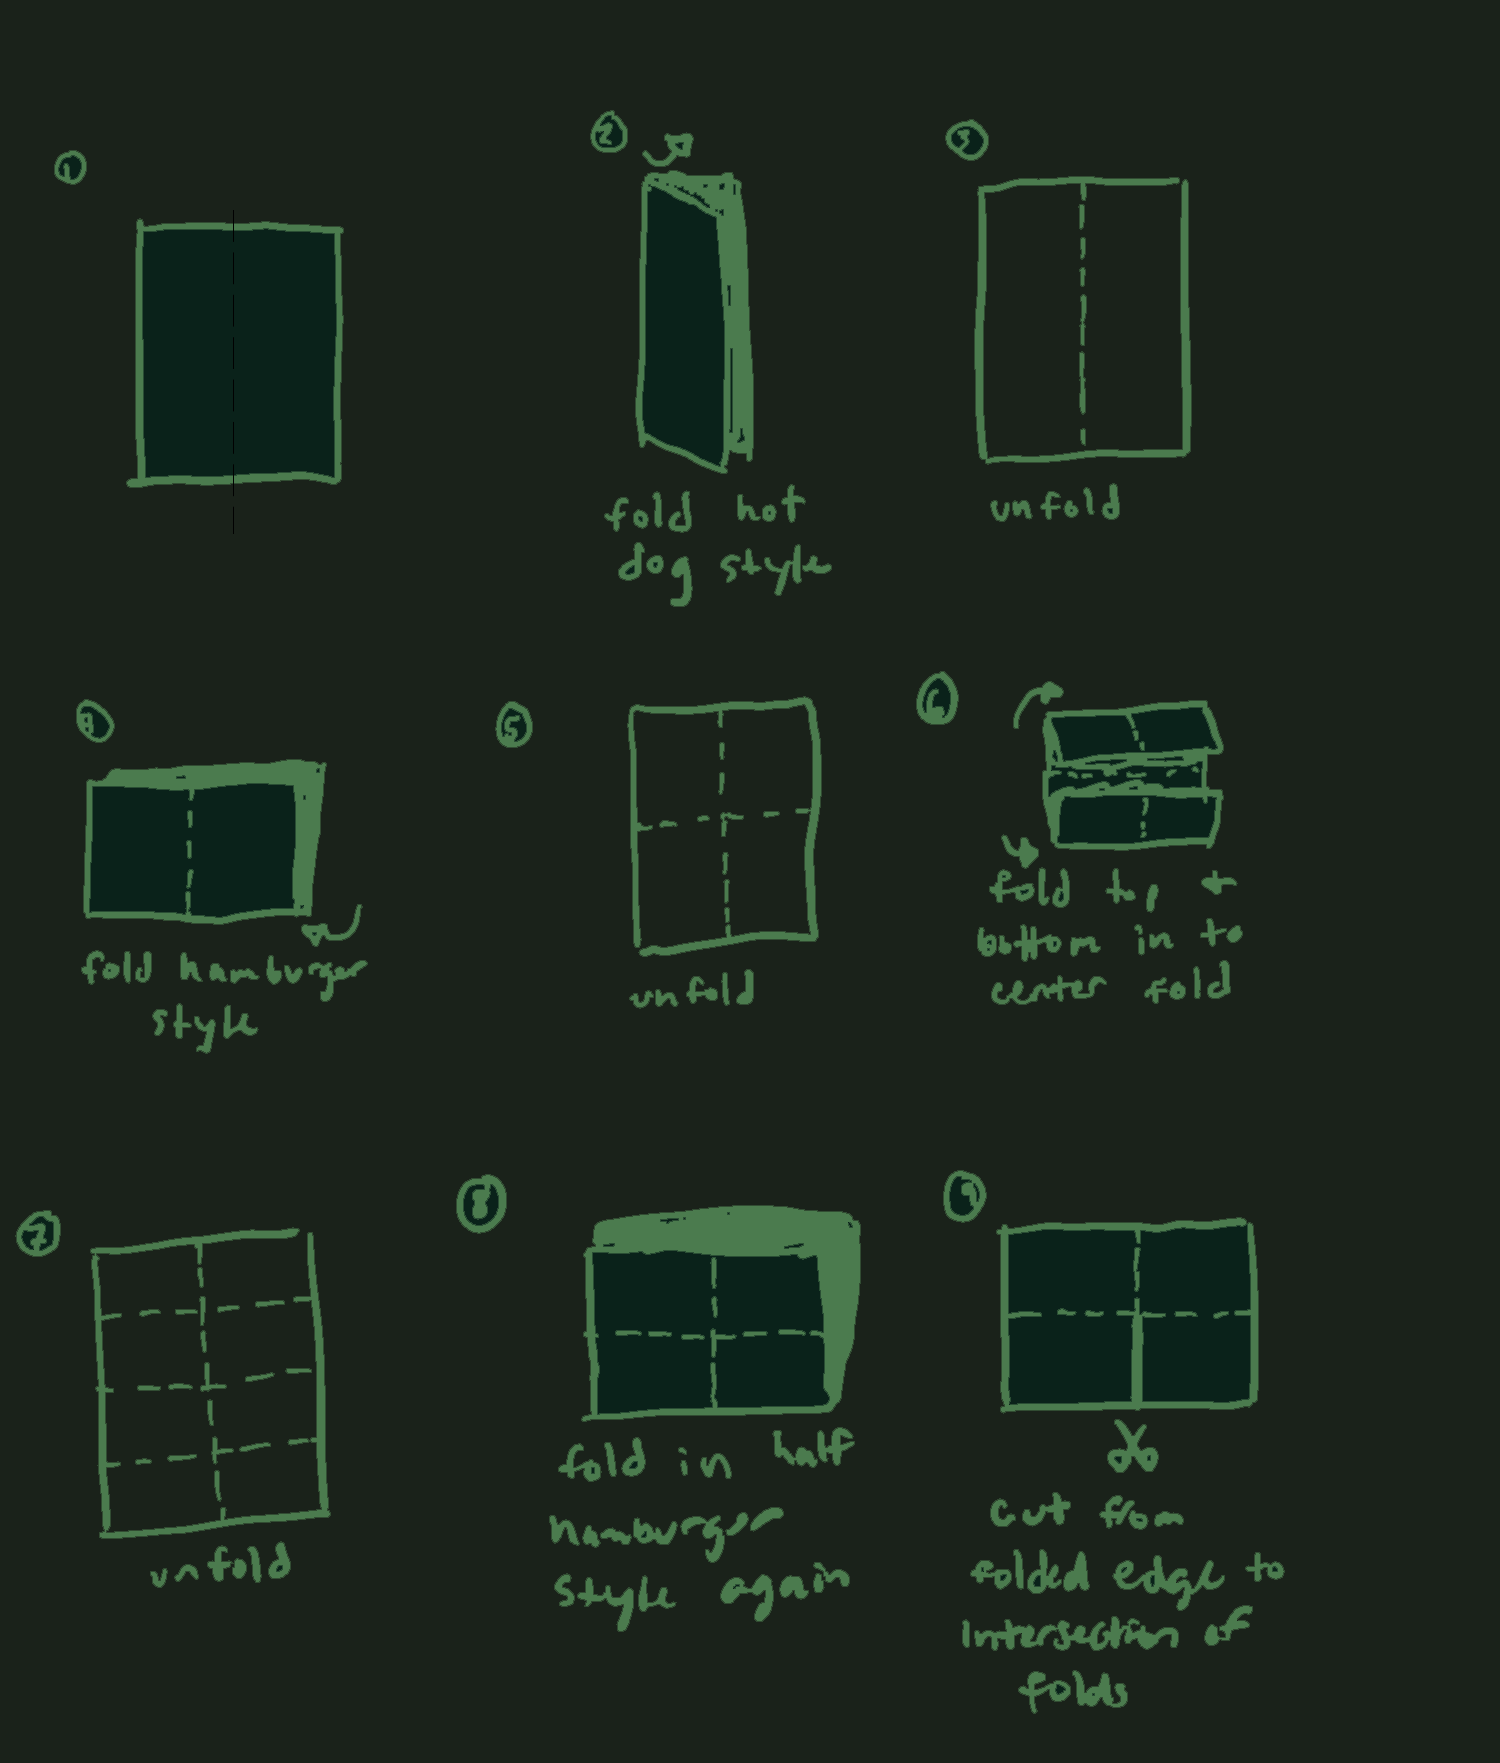 1
2
fold hot
dog style
3
unfold
4
fold hamburger
style
5
unfold
6
fold top +
bottom in to
center fold
7
unfold
8
fold in half
hamburger
style again
9
cut from
folded edge to
intersection of
folds